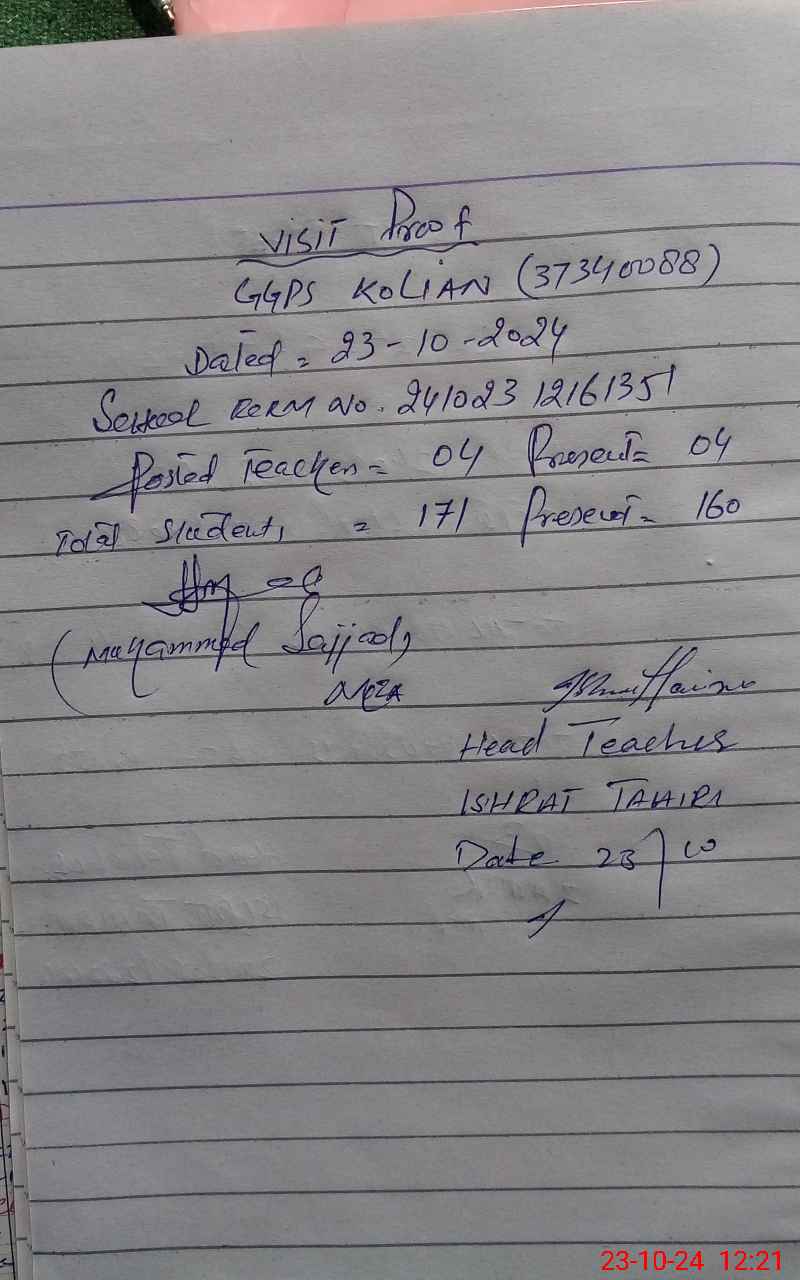 VISIT Proof
GGPS KOLIAN (37340088)
Dated = 23-10-2024
School FORM No. 24102312161351
Posted Teacher = 04 Present = 04
Total Students = 171 Present = 160
(Muhammad Sajjad)
MEA
Head Teacher
ISHRAT TAHIRA
Date 23/10
23-10-24 12:21